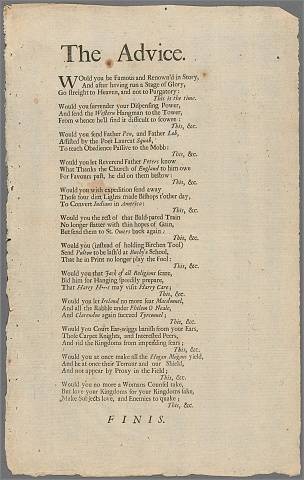 The Advice.
WOuld you be Famous and Renown'd in Story,
And after having run a Stage of Glory,
Go streight to Heaven, and not to Purgatory:
This is the time.
Would you surrender your Dispensing Power,
And send the Western Hangman to the Tower,
From whence he'll find it difficult to scowre:
This, &c.
Would you send Father Pen, and Father Lob,
Assisted by the Poet Laureat Squab,
To teach Obedience Passive to the Mobb:
This, &c.
Would you let Reverend Father Peters know
What Thanks the Church of England to him owe
For Favours past, he did on them bestow:
This, &c.
Would you with expedition send away
Those four dim Lights made Bishops t'other day,
To Convert Indians in America:
This, &c.
Would you the rest of that Bald-pated Train
No longer flatter with thin hopes of Gain,
But send them to St. Omers back again:
This, &c.
Would you (instead of holding Birchen Tool)
Send Pulton to be lash'd at Busby's School,
That he in Print no longer play the Fool:
This, &c.
Would you that Jack of all Religions scare,
Bid him for Hanging speedily prepare,
That Harry H---s may visit Harry Care;
This, &c.
Would you let Ireland no more fear Macdonnel,
And all the Rabble under Phelim O Neale,
And Clarendon again succeed Tyrconnel;
This, &c.
Would you Court Ear-wiggs banish from your Ears,
Those Carpet Knights, and Interested Peers,
And rid the Kingdoms from impending fears;
This, &c.
Would you at once make all the Hogen Mogens yield,
And be at once their Terrour and our Shield,
And not appear by Proxy in the Field;
This, &c.
Would you no more a Womans Counsel take,
But love your Kingdoms for your Kingdoms sake,
Make Subjects love, and Enemies to quake;
This, &c.
FINIS.